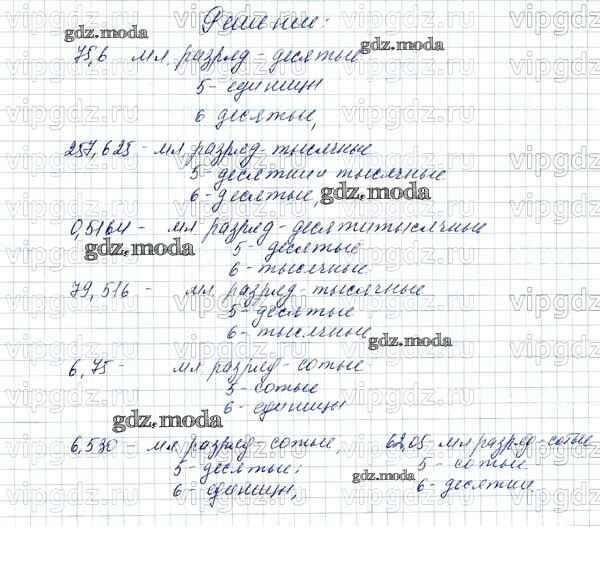 Решение:
75,6 мл. разряд - десятые
5 - единицы
6 десятые,
257,625 - мл. разряд - тысячные
5 - десятки и тысячные
6 - десятые,
0,5164 - мл разряд - десятитысячные
5 - десятые
6 - тысячные
79,516 - мл. разряд - тысячные
5 - десятые
6 - тысячные
6,75 - мл разряд - сотые
5 - сотые
6 - единицы
6,530 - мл. разряд - сотые,
5 - десятые;
6 - единиц,
62,05 мл разряд - сотые
5 - сотые
6 - десятки
gdz.moda
gdz.moda
gdz.moda
gdz.moda
gdz.moda
gdz.moda
gdz.moda
vipgdz.ru